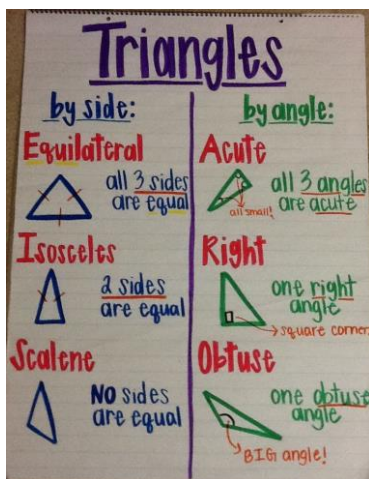 Triangles
by side:
Equilateral
all 3 sides
are equal
Isosceles
2 sides
are equal
Scalene
NO sides
are equal
by angle:
Acute
all 3 angles
are acute
all small!
Right
one right
angle
square corner
Obtuse
one obtuse
angle
BIG angle!